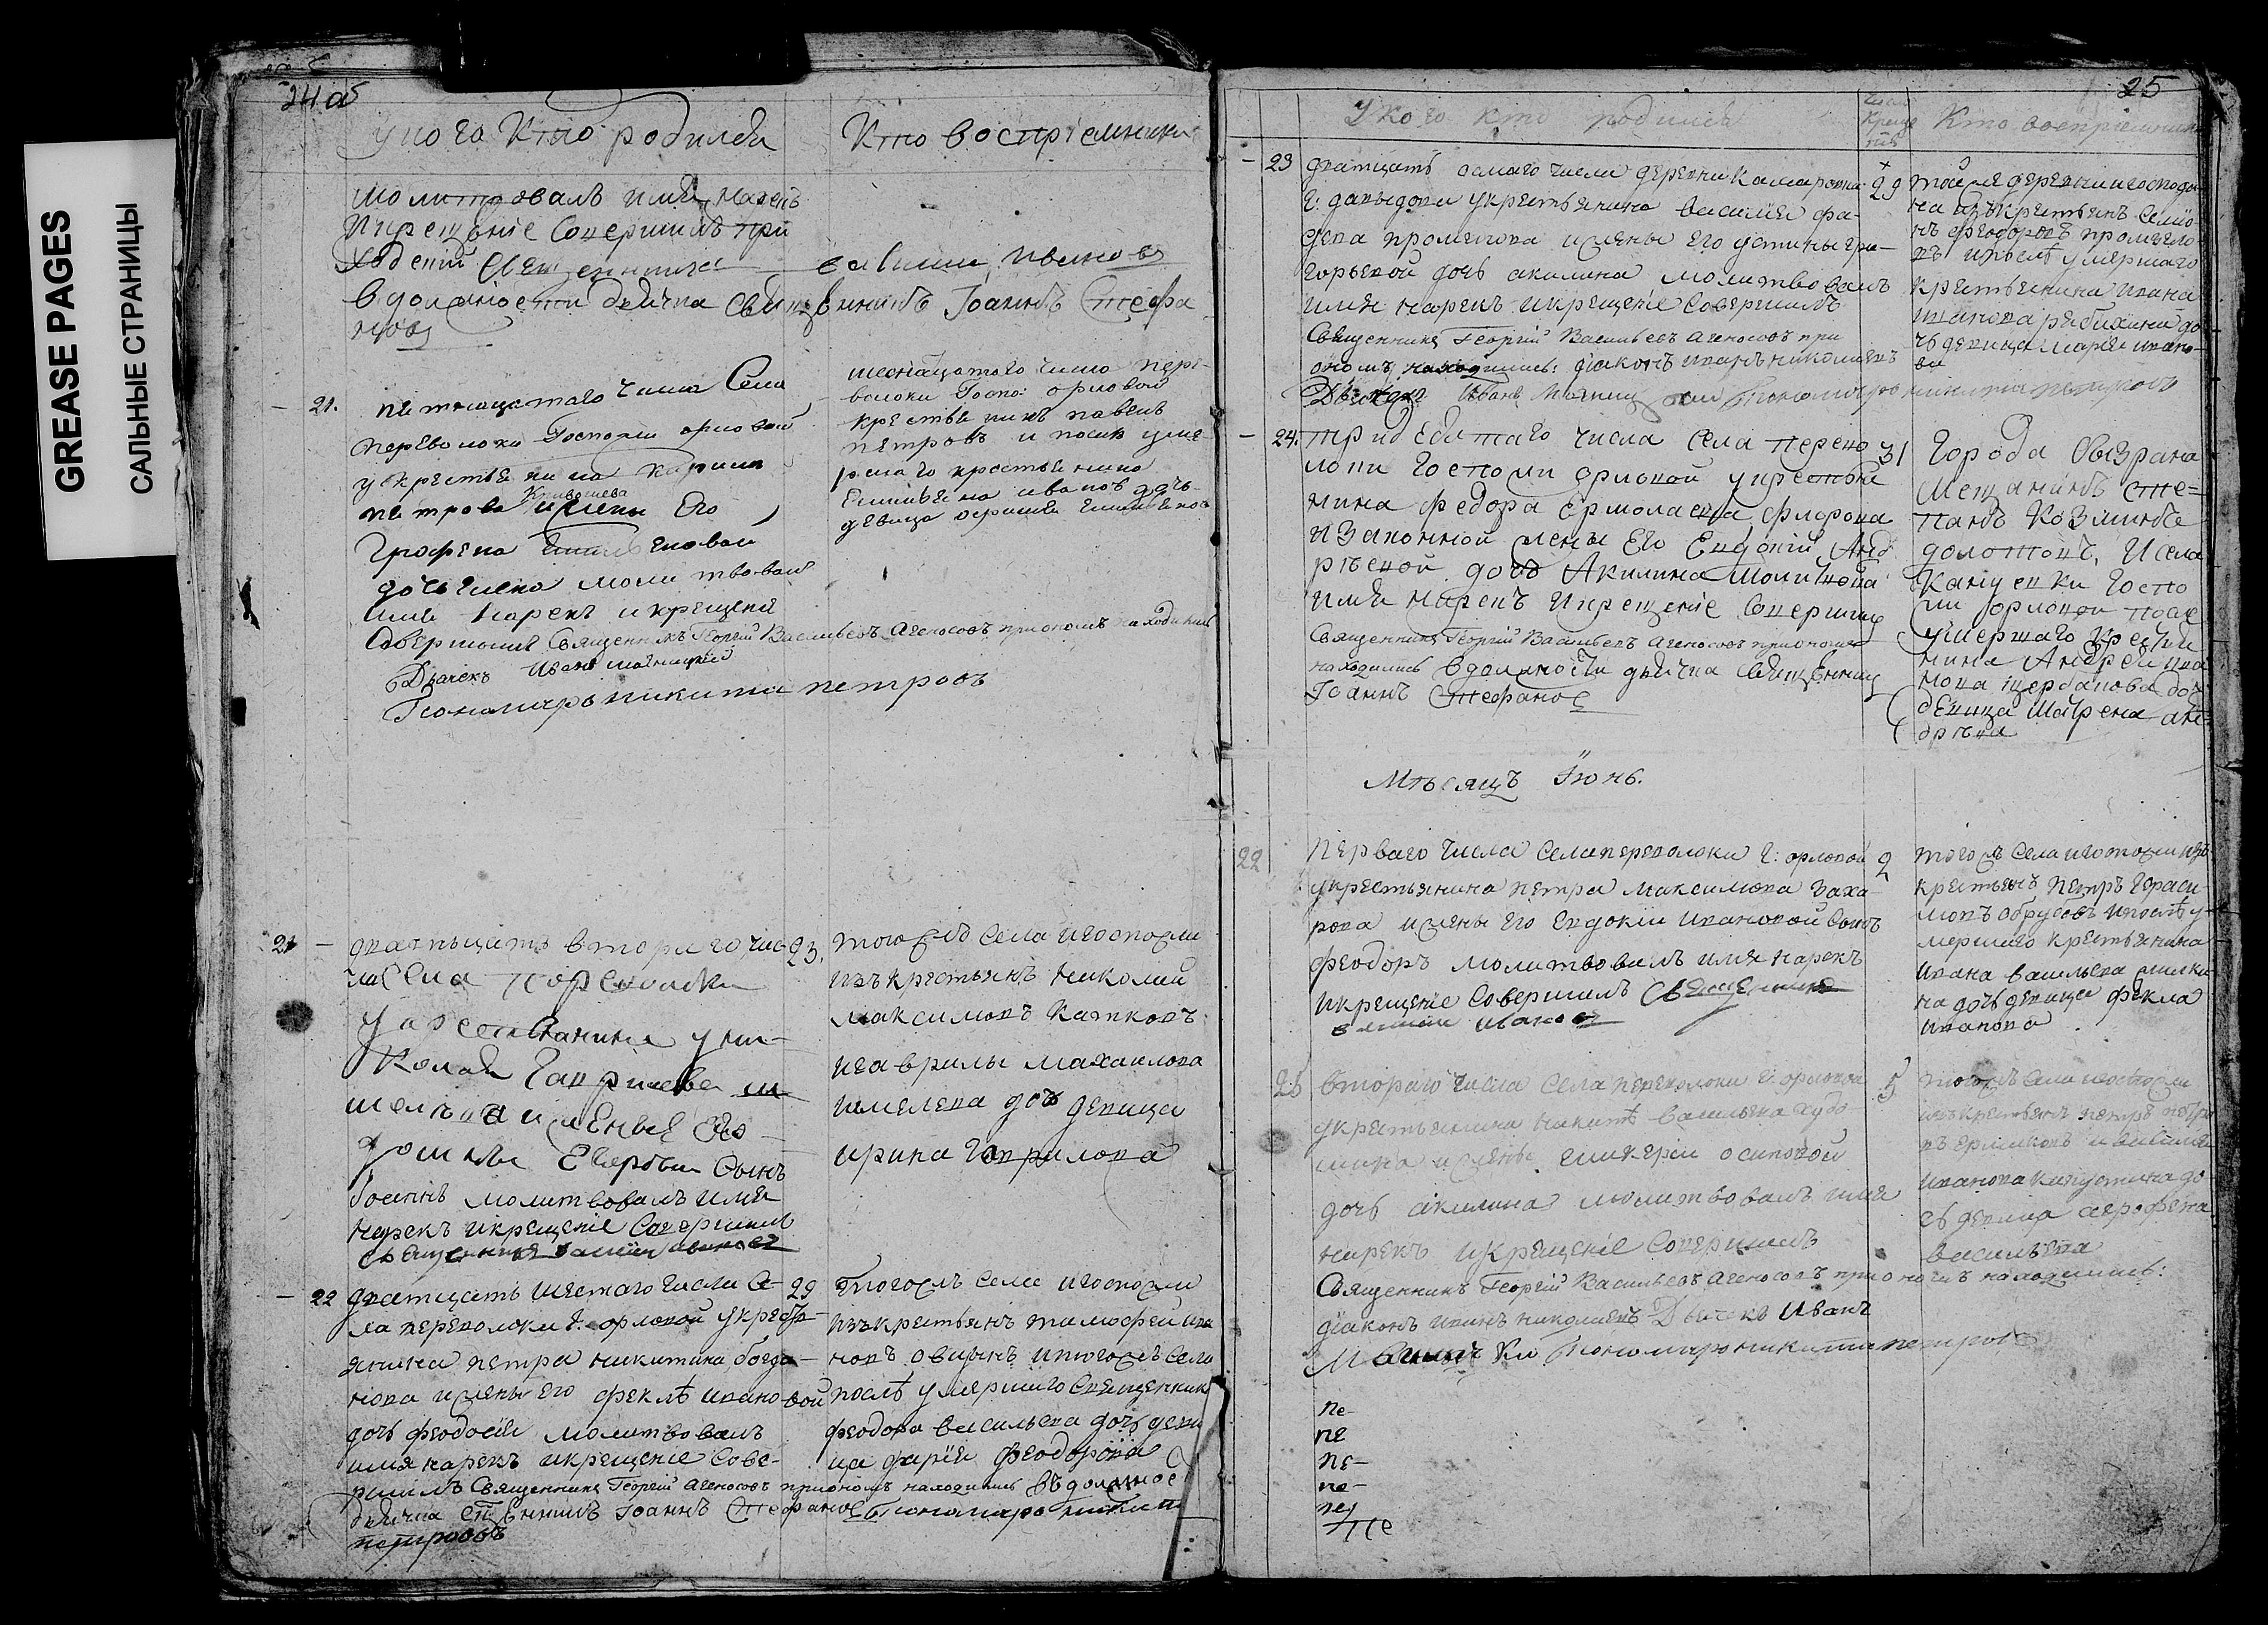 GREASE PAGES
САЛЬНЫЕ СТРАНИЦЫ
24 об
у кого кто родился
Кто восприемники
молитвовалъ имя нарекъ
и крещеніе совершилъ при
ходский священникъ
василий ивановъ
в должности дьячка священникъ Іоаннъ Стефа
новъ
21.
пятнацатого числа села
переволоки Госпожи орловой
у крестьянина
петрова Кривошева и жены Его
дочь Елена молитвовалъ
имя нарекъ и крещеніе
совершилъ Священникъ Георгій Васильевъ Агеносовъ при ономъ находились
Дьячекъ Иванъ
Пономарь никита петровъ
шеснацатого числа пере-
волоки Госпо: орловой
крестьянинъ павелъ
петровъ и после уме-
ршаго крестьянина
Емильяна иванов дочь
девица
21
дватцать втораго чис- 23.
ла села Переволоки
у крестьянина у ни-
колая Гаврилова
и жены Его
сынъ
Іоаннъ молитвовалъ имя
нарекъ и крещеніе совершилъ
священникъ василий ивановъ
тогожъ села и госпожи
изъ крестьянъ николай
максимовъ Катковъ
и гаврилы махаилова
шмелева дочь девица
ирина Гаврилова
22
дватцать шестаго числа се- 29
ла переволоки г. орловой у кресть-
янина петра никитина богда-
нова и жены его феклѣ ивановой
дочь феодосія молитвовалъ
имя нарекъ и крещеніе сове-
ршилъ Священникъ Георгій Агеносовъ при ономъ находились въ должнос
дьячка священникъ Іоаннъ Стефановъ Пономарь никита
петровъ
тогожъ села и госпожи
изъ крестьянъ тимофей ива
новъ овчинъ и тогожъ села
послѣ умершаго священник
феодора васильева дочь деви
ца дарія феодорова
25
У кого кто родился
число
креще
нія
Кто восприемники
23
дватцать осмаго числа деревни камаровки 29
г: давыдова у крестьянина василія фа-
дева промзелова и жены его устины гри-
горьевой дочь акилина молитвовалъ
имя нарекъ и крещеніе совершилъ
Священникъ Георгій Васильевъ Агеносовъ при
ономъ находились: діаконъ иванъ николаевъ
Дьячекъ Иванъ Пономарь никита петровъ
тойже деревни и господи-
на изъ крестьянъ семіо-
нъ феодоровъ промзело-
въ и послѣ умершаго
крестьянина ивана
иванова рябихина до-
чь девица марія ивано-
ва
24.
тридесятаго числа села перево 31
локи Госпожи орловой у крестья
нина федора Ермолаева фролова
и законной жены Его Евдокіи Анд
ревной дочь Акилина молитвова
имя нарекъ и крещеніе совершилъ
Священникъ Георгій Васильевъ Агеносовъ при ономъ
находились в должности дьячка священникъ
Іоаннъ Стефановъ
Города Сызрана
мещанинъ сте=
панъ Козминъ
долотовъ, и села
Кануевки госпо
жи орловой после
умершаго крестья
нина Андрея ива
нова щербакова доч
девица Матрена ан
древа
Мѣсяцъ Іюнь.
22
перваго числа села переволоки г: орловой 2
у крестьянина петра максимова заха-
рова и жены его евдокіи ивановой сынъ
феодоръ молитвовалъ имя нарекъ
и крещеніе совершилъ священникъ
василий ивановъ
тогожъ села и госпожи изъ
крестьянъ петръ гераси-
мовъ обрубовъ и послѣ у-
мершаго крестьянина
ивана васильева
на дочь девица фекла
иванова
25
втораго числа села переволоки г. орловой 5
у крестьянина никиты васильева худо-
шина и жены гликеріи осиповой
дочь акилина молитвовалъ имя
нарекъ и крещеніе совершилъ
Священникъ Георгій Васильевъ Агеносовъ при ономъ находились:
діаконъ иванъ николаевъ Дьячекъ Иванъ
Пономарь никита петровъ
тогожъ села и госпожи
изъ крестьянъ петръ петро
въ ермаковъ и василія
иванова капустина до
чь девица
васильева
пе-
пе
пе-
пе-
пе
пе